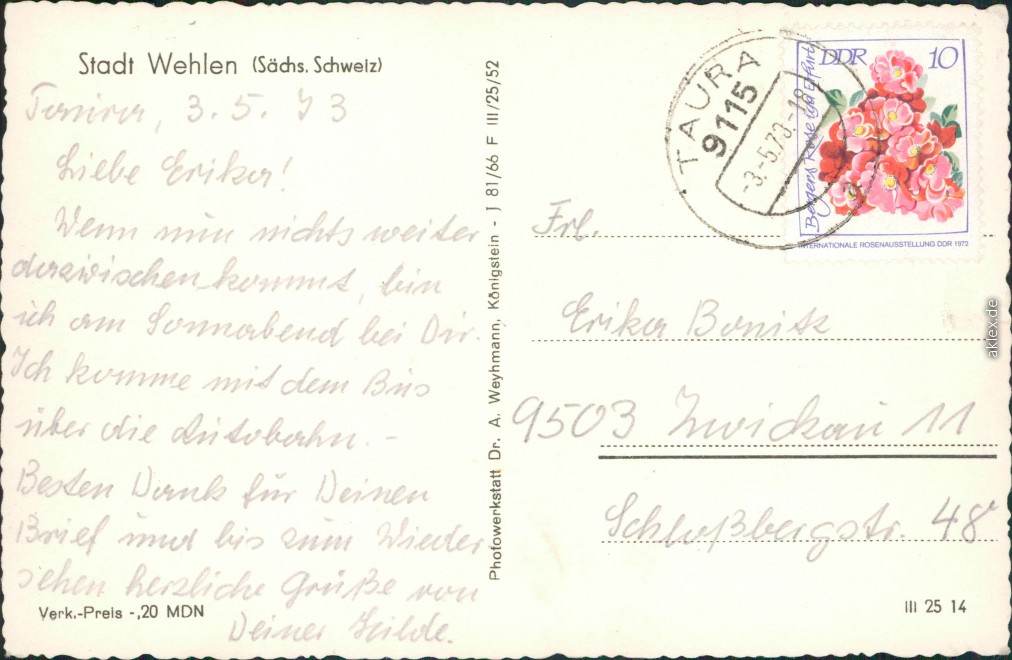 Stadt Wehlen (Sächs. Schweiz)
Taura, 3. 5. 73
Liebe Erika!
Wenn nun nichts weiter
dazwischen kommt, bin
ich am Sonnabend bei Dir.
Ich komme mit dem Bus
über die Autobahn. -
Besten Dank für Deinen
Brief und bis zum Wieder
sehen herzliche Grüße von
Deiner Hilde.
Verk.-Preis -,20 MDN
Photowerkstatt Dr. A. Weyhmann, Königstein - J 81/66 F III/25/52
TAURA
9115
-3.-5.73.-18
DDR 10
Bergers Rose iga Erfurt
INTERNATIONALE ROSENAUSSTELLUNG DDR 1972
Frl.
Erika Bonitz
9503 Zwickau 11
Schloßbergstr. 48
III 25 14
aklex.de